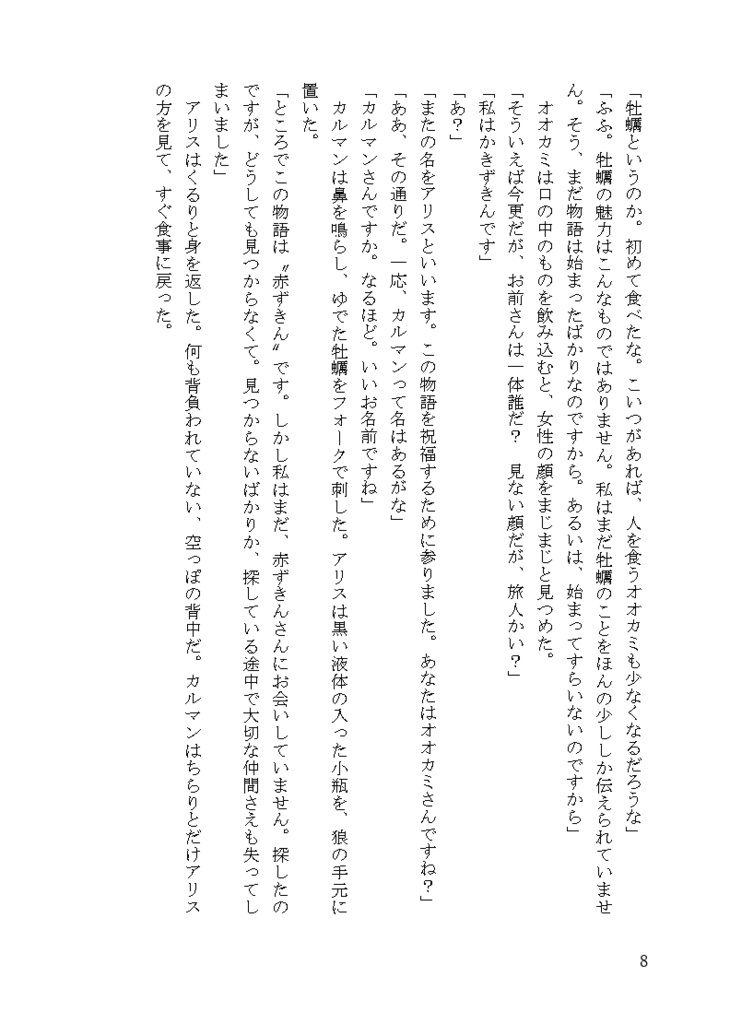 「牡蠣というのか。初めて食べたな。こいつがあれば、人を食うオオカミも少なくなるだろうな」
「ふふ。牡蠣の魅力はこんなものではありません。私はまだ牡蠣のことをほんの少ししか伝えられていませ
ん。そう、まだ物語は始まったばかりなのですから。あるいは、始まってすらいないのですから」
　オオカミは口の中のものを飲み込むと、女性の顔をまじまじと見つめた。
「そういえば今更だが、お前さんは一体誰だ？　見ない顔だが、旅人かい？」
「私はかきずきんです」
「あ？」
「またの名をアリスといいます。この物語を祝福するために参りました。あなたはオオカミさんですね？」
「ああ、その通りだ。一応、カルマンって名はあるがな」
「カルマンさんですか。なるほど。いいお名前ですね」
　カルマンは鼻を鳴らし、ゆでた牡蠣をフォークで刺した。アリスは黒い液体の入った小瓶を、狼の手元に
置いた。
「ところでこの物語は〝赤ずきん〟です。しかし私はまだ、赤ずきんさんにお会いしていません。探したの
ですが、どうしても見つからなくて。見つからないばかりか、探している途中で大切な仲間さえも失ってし
まいました」
　アリスはくるりと身を返した。何も背負われていない、空っぽの背中だ。カルマンはちらりとだけアリス
の方を見て、すぐ食事に戻った。
8